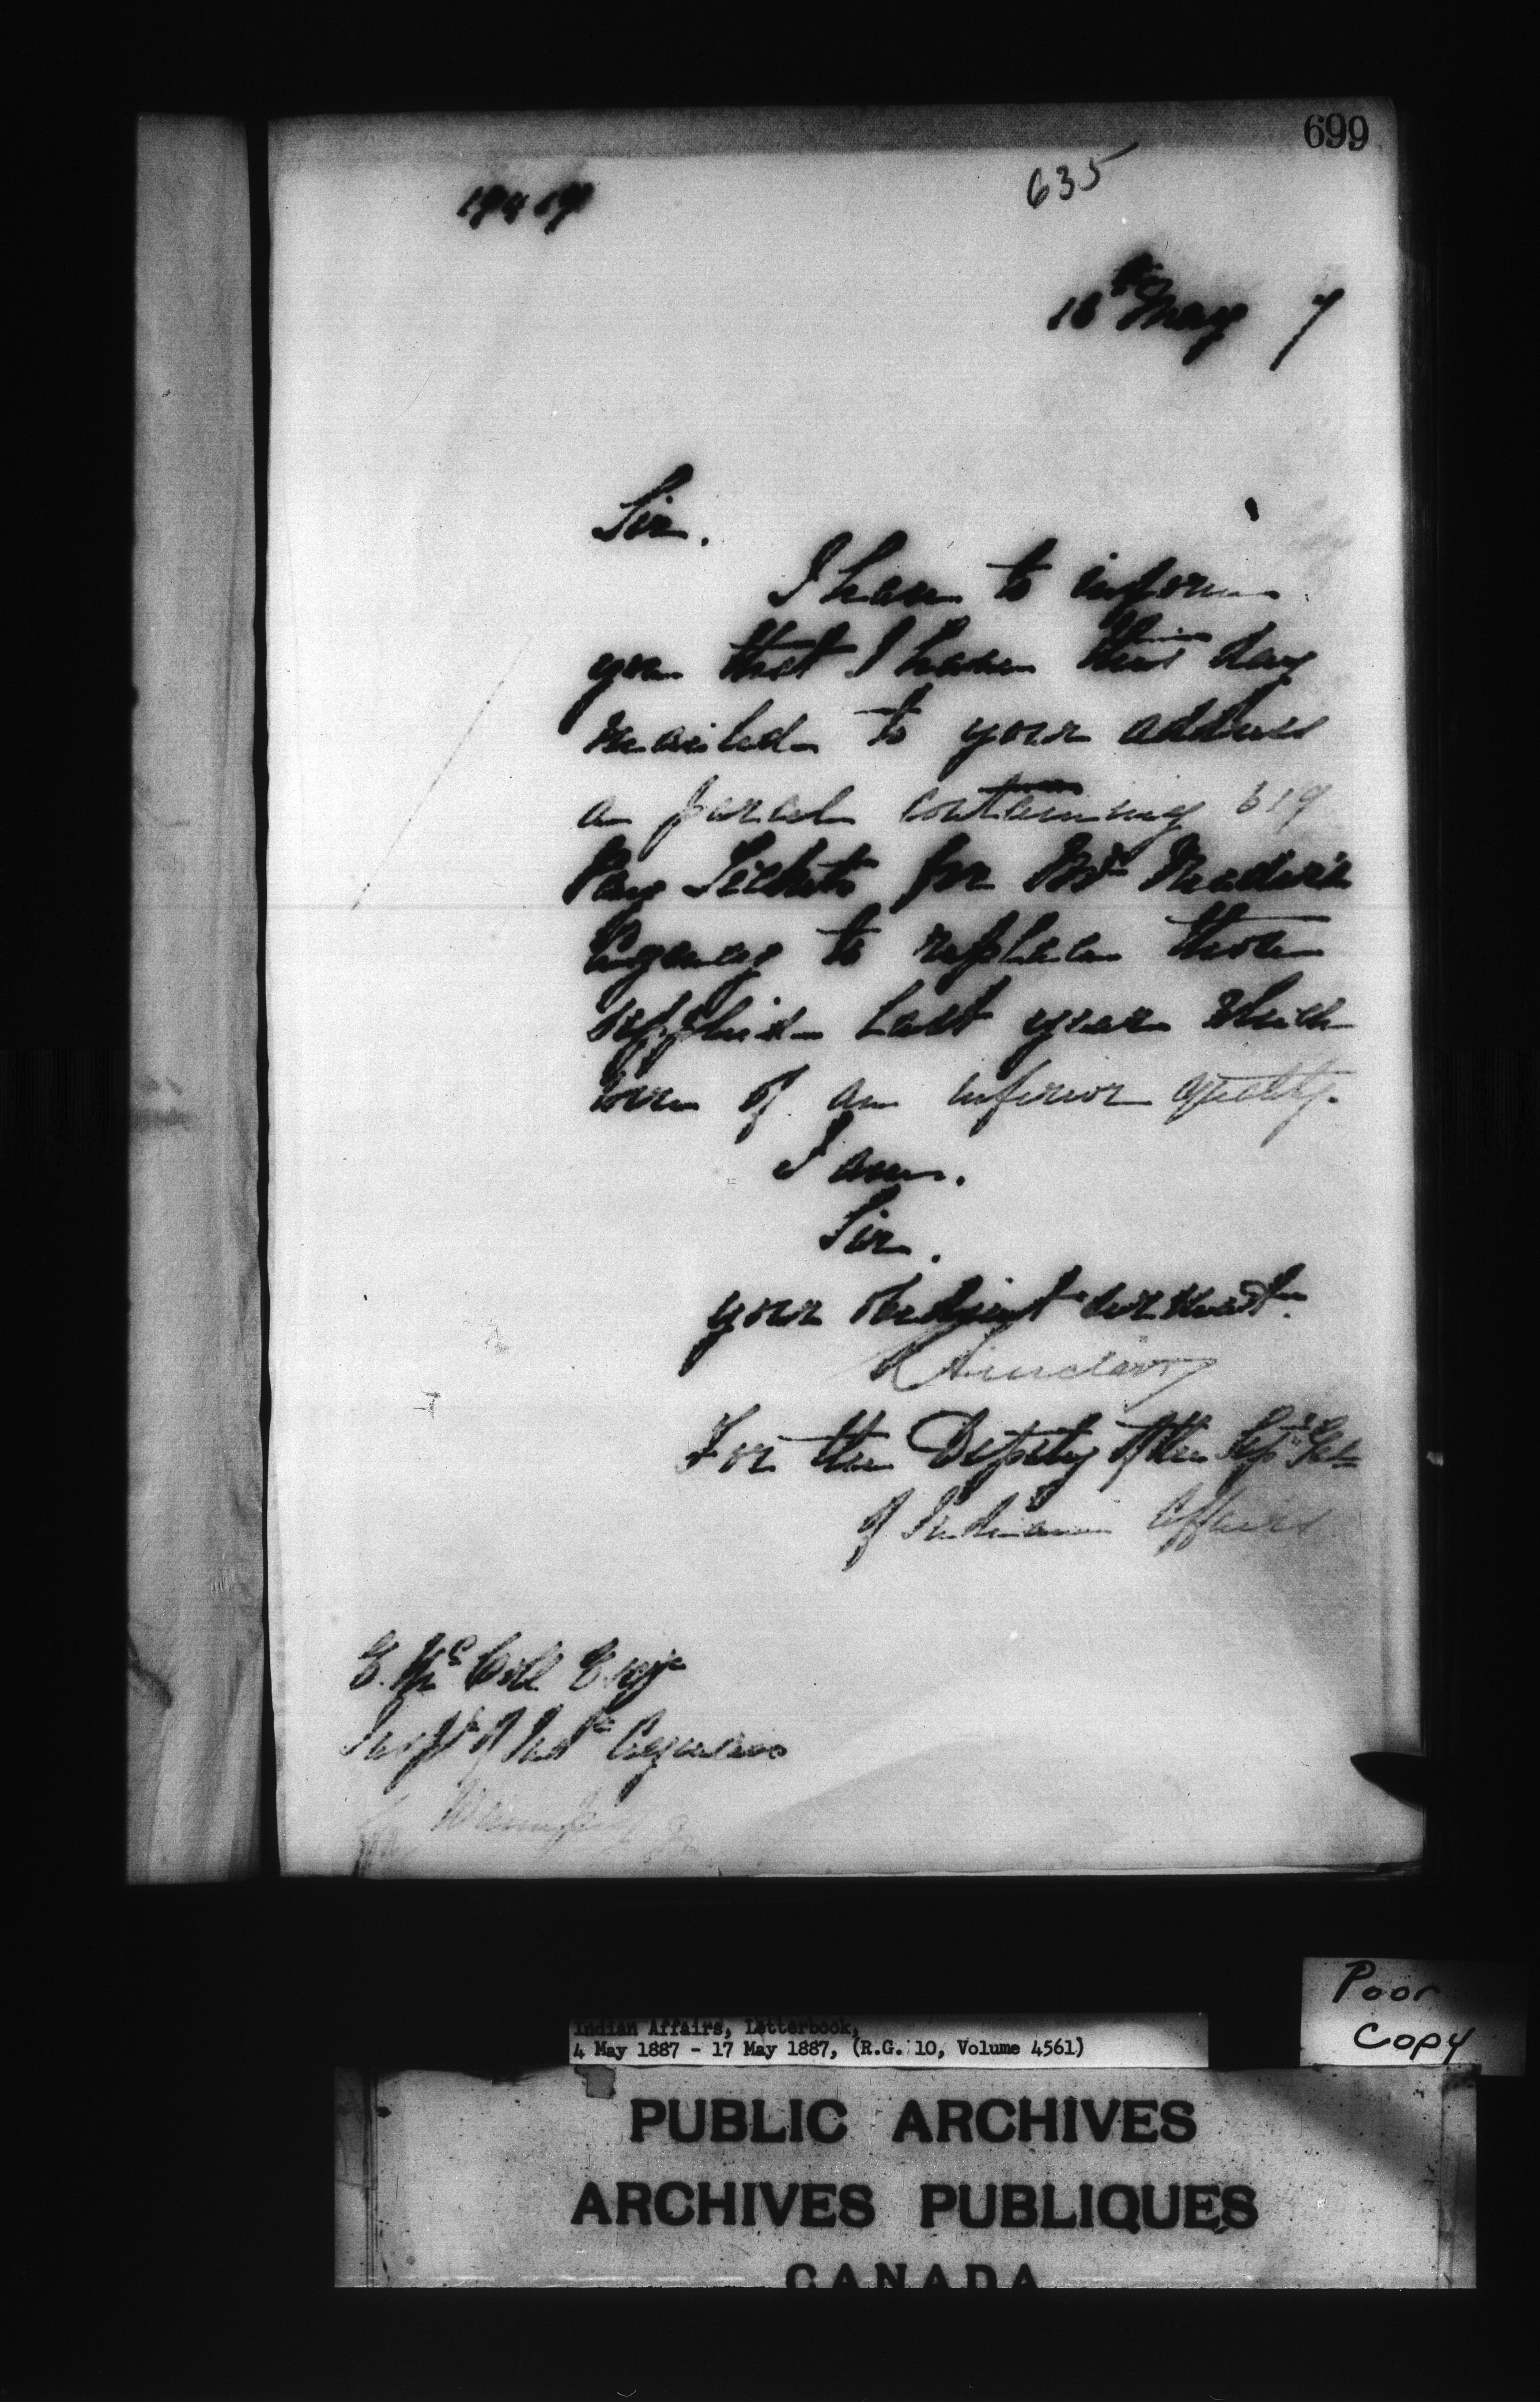 699
635
May 7
Sir.
I have to inform
you that I have this day
mailed to your address
a parcel containing 619
Pay Tickets for Mr
Agency to replace those
supplied last year which
were of an inferior quality.
I am.
Sir.
your obedient servant.
R Sinclair
For the Deputy of the Supt Genl
of Indian Affairs
E. McColl Esqr
Inspr of Indn Agencies
Winnipeg
Poor
Copy
Indian Affairs, Letterbook,
4 May 1887 - 17 May 1887, (R.G. 10, Volume 4561)
PUBLIC ARCHIVES
ARCHIVES PUBLIQUES
CANADA